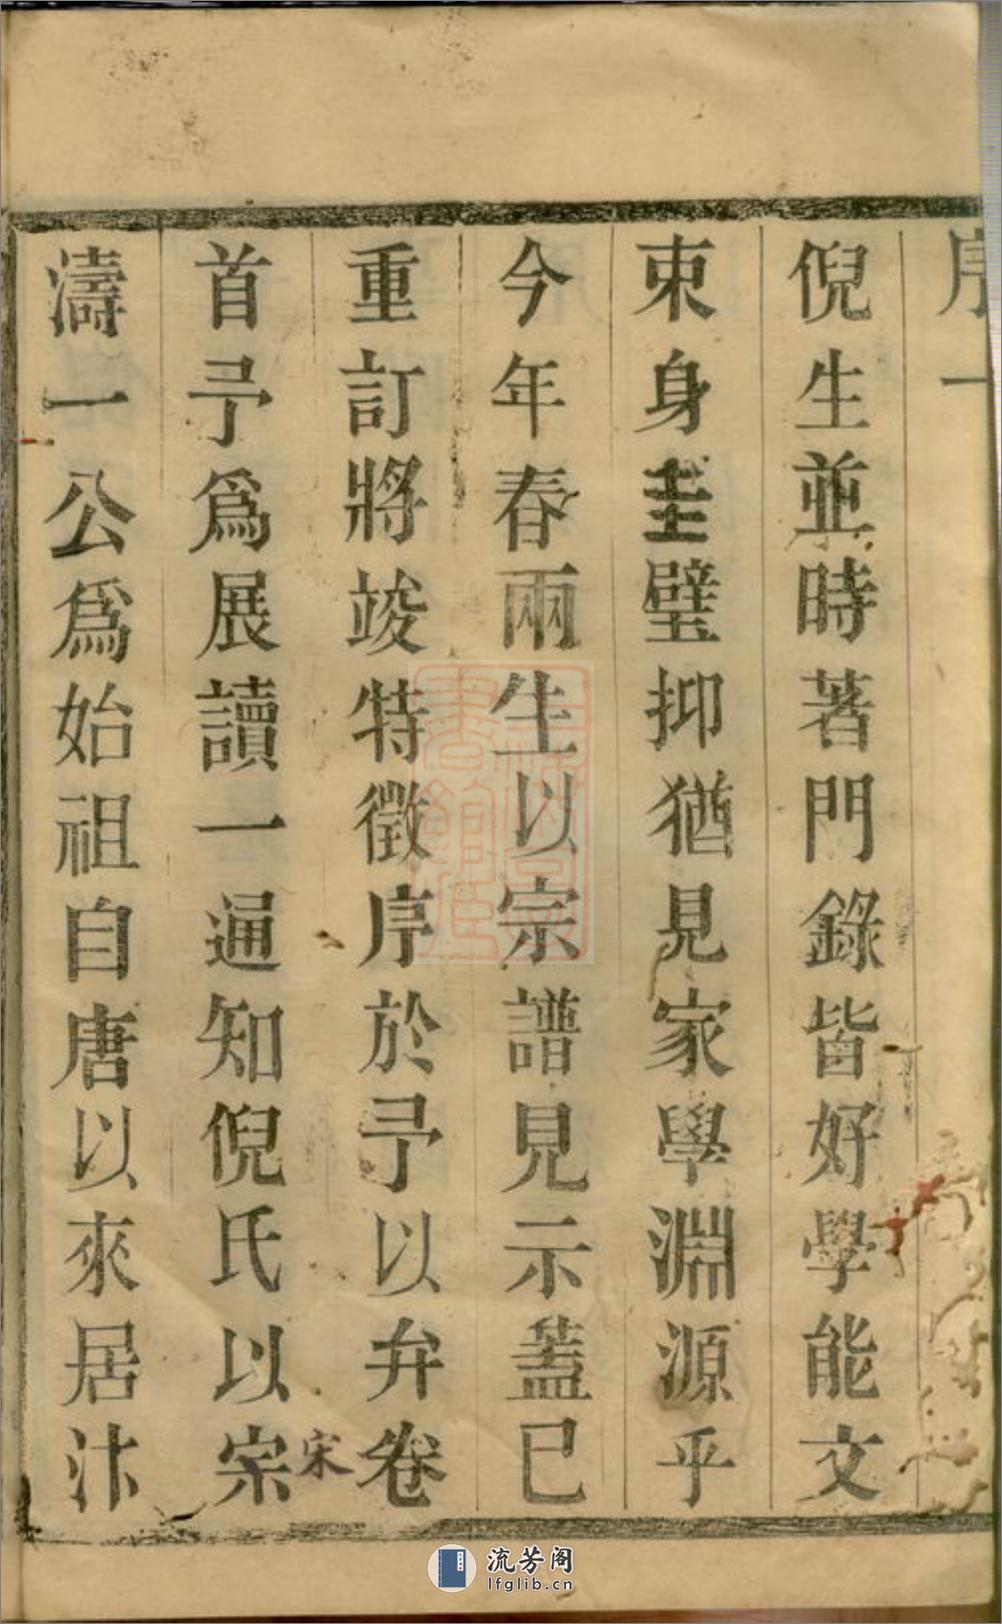 序一
倪生並時著門錄皆好學能文
束身圭璧抑猶見家學淵源乎
今年春兩生以宗譜見示蓋已
重訂將竣特徵序於予以弁卷
宋
首予爲展讀一通知倪氏以宗
濤一公爲始祖自唐以來居汴
流芳阁
lfglib.cn